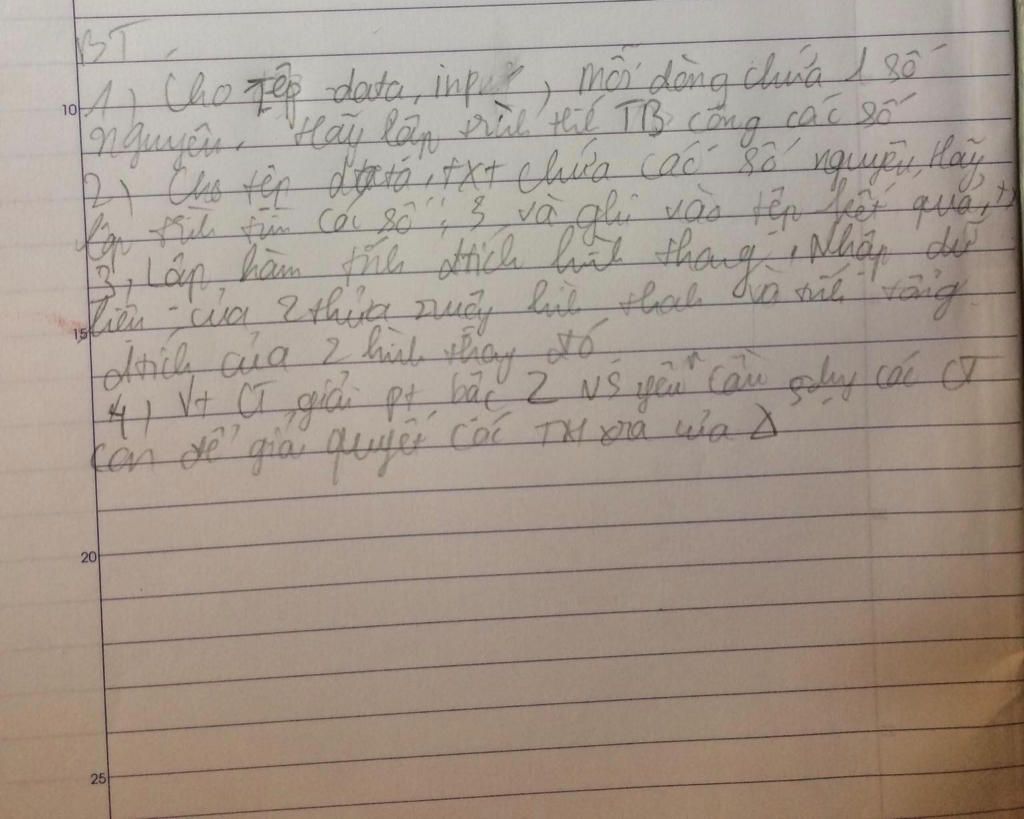 BT
1) Cho tệp data, input, mỗi dòng chứa 1 số
nguyên. Hãy lập trìh tíh TB cộng các số
2) Cho tệp data, txt chứa các số nguyên, Hãy
lập trìh tìm các số : 3 và ghi vào tệp kết quả,
3, Lập hàm tíh dtích hìh thang, Nhập dữ
liệu của 2 thửa ruộng hìh thah và tíh tổng
dtích của 2 hìh thag đó
4) Vt CT giải pt bậc 2 NS yêu cầu các CT
con để giải quyết các TH xra của Δ
10
15
20
25